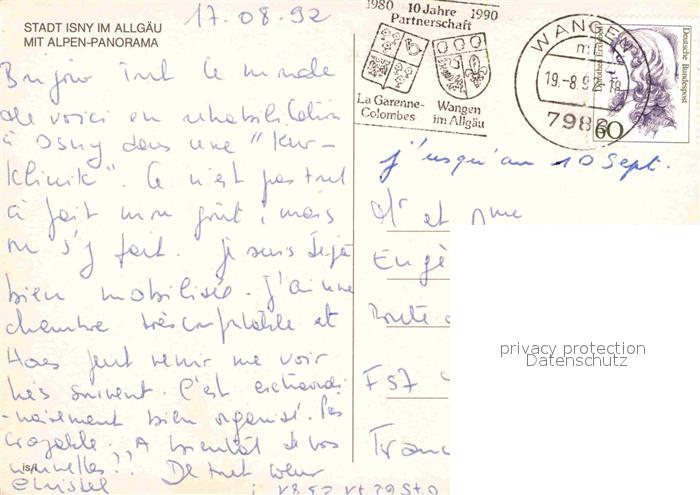 17.08.92
STADT ISNY IM ALLGÄU
MIT ALPEN-PANORAMA
Bonjour tout le monde
de voici en rehabilitation
à Isny dans une "Kur-
Klinik". Ce n'est pas tout
à fait mon goût, mais
on s'y fait. Je suis déjà
bien mobilisée. J'ai une
chambre très comfortable et
Hans peut venir me voir
très souvent. C'est extraordi
-nairement bien organisé. Pas
croyable. A bientôt de vos
nouvelles!! De tout coeur
Christel
is/I
1980 10 Jahre 1990
Partnerschaft
La Garenne-
Colombes
Wangen
im Allgäu
WANGEN
19.-8.9
-18
7988
Deutsche Bundespost
60
j'usqu'au 10 Sept.
Mr et Mme
Eugè
Route
F57
Franc
privacy protection
Datenschutz